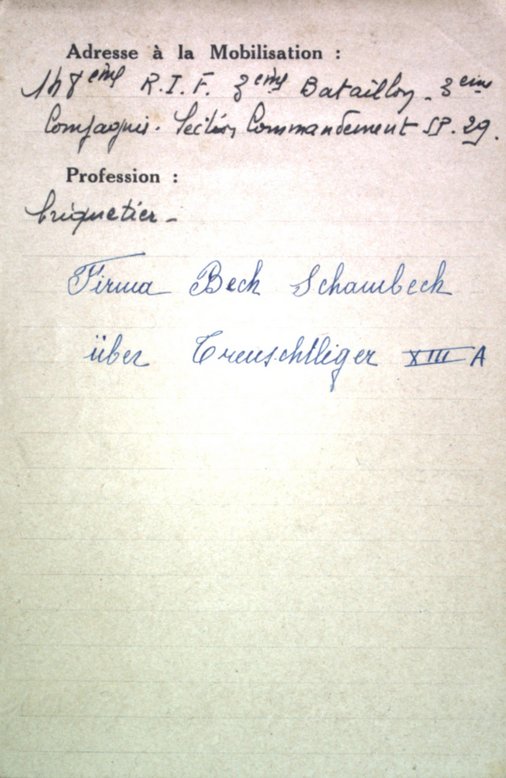 Adresse à la Mobilisation :
148ème R.I.F. 3ème Bataillon - 3eme
Compagnie. Section Commandement SP. 29.
Profession :
briquetier -
Firma Beck Schambeck
über Treuschtliger XIII A